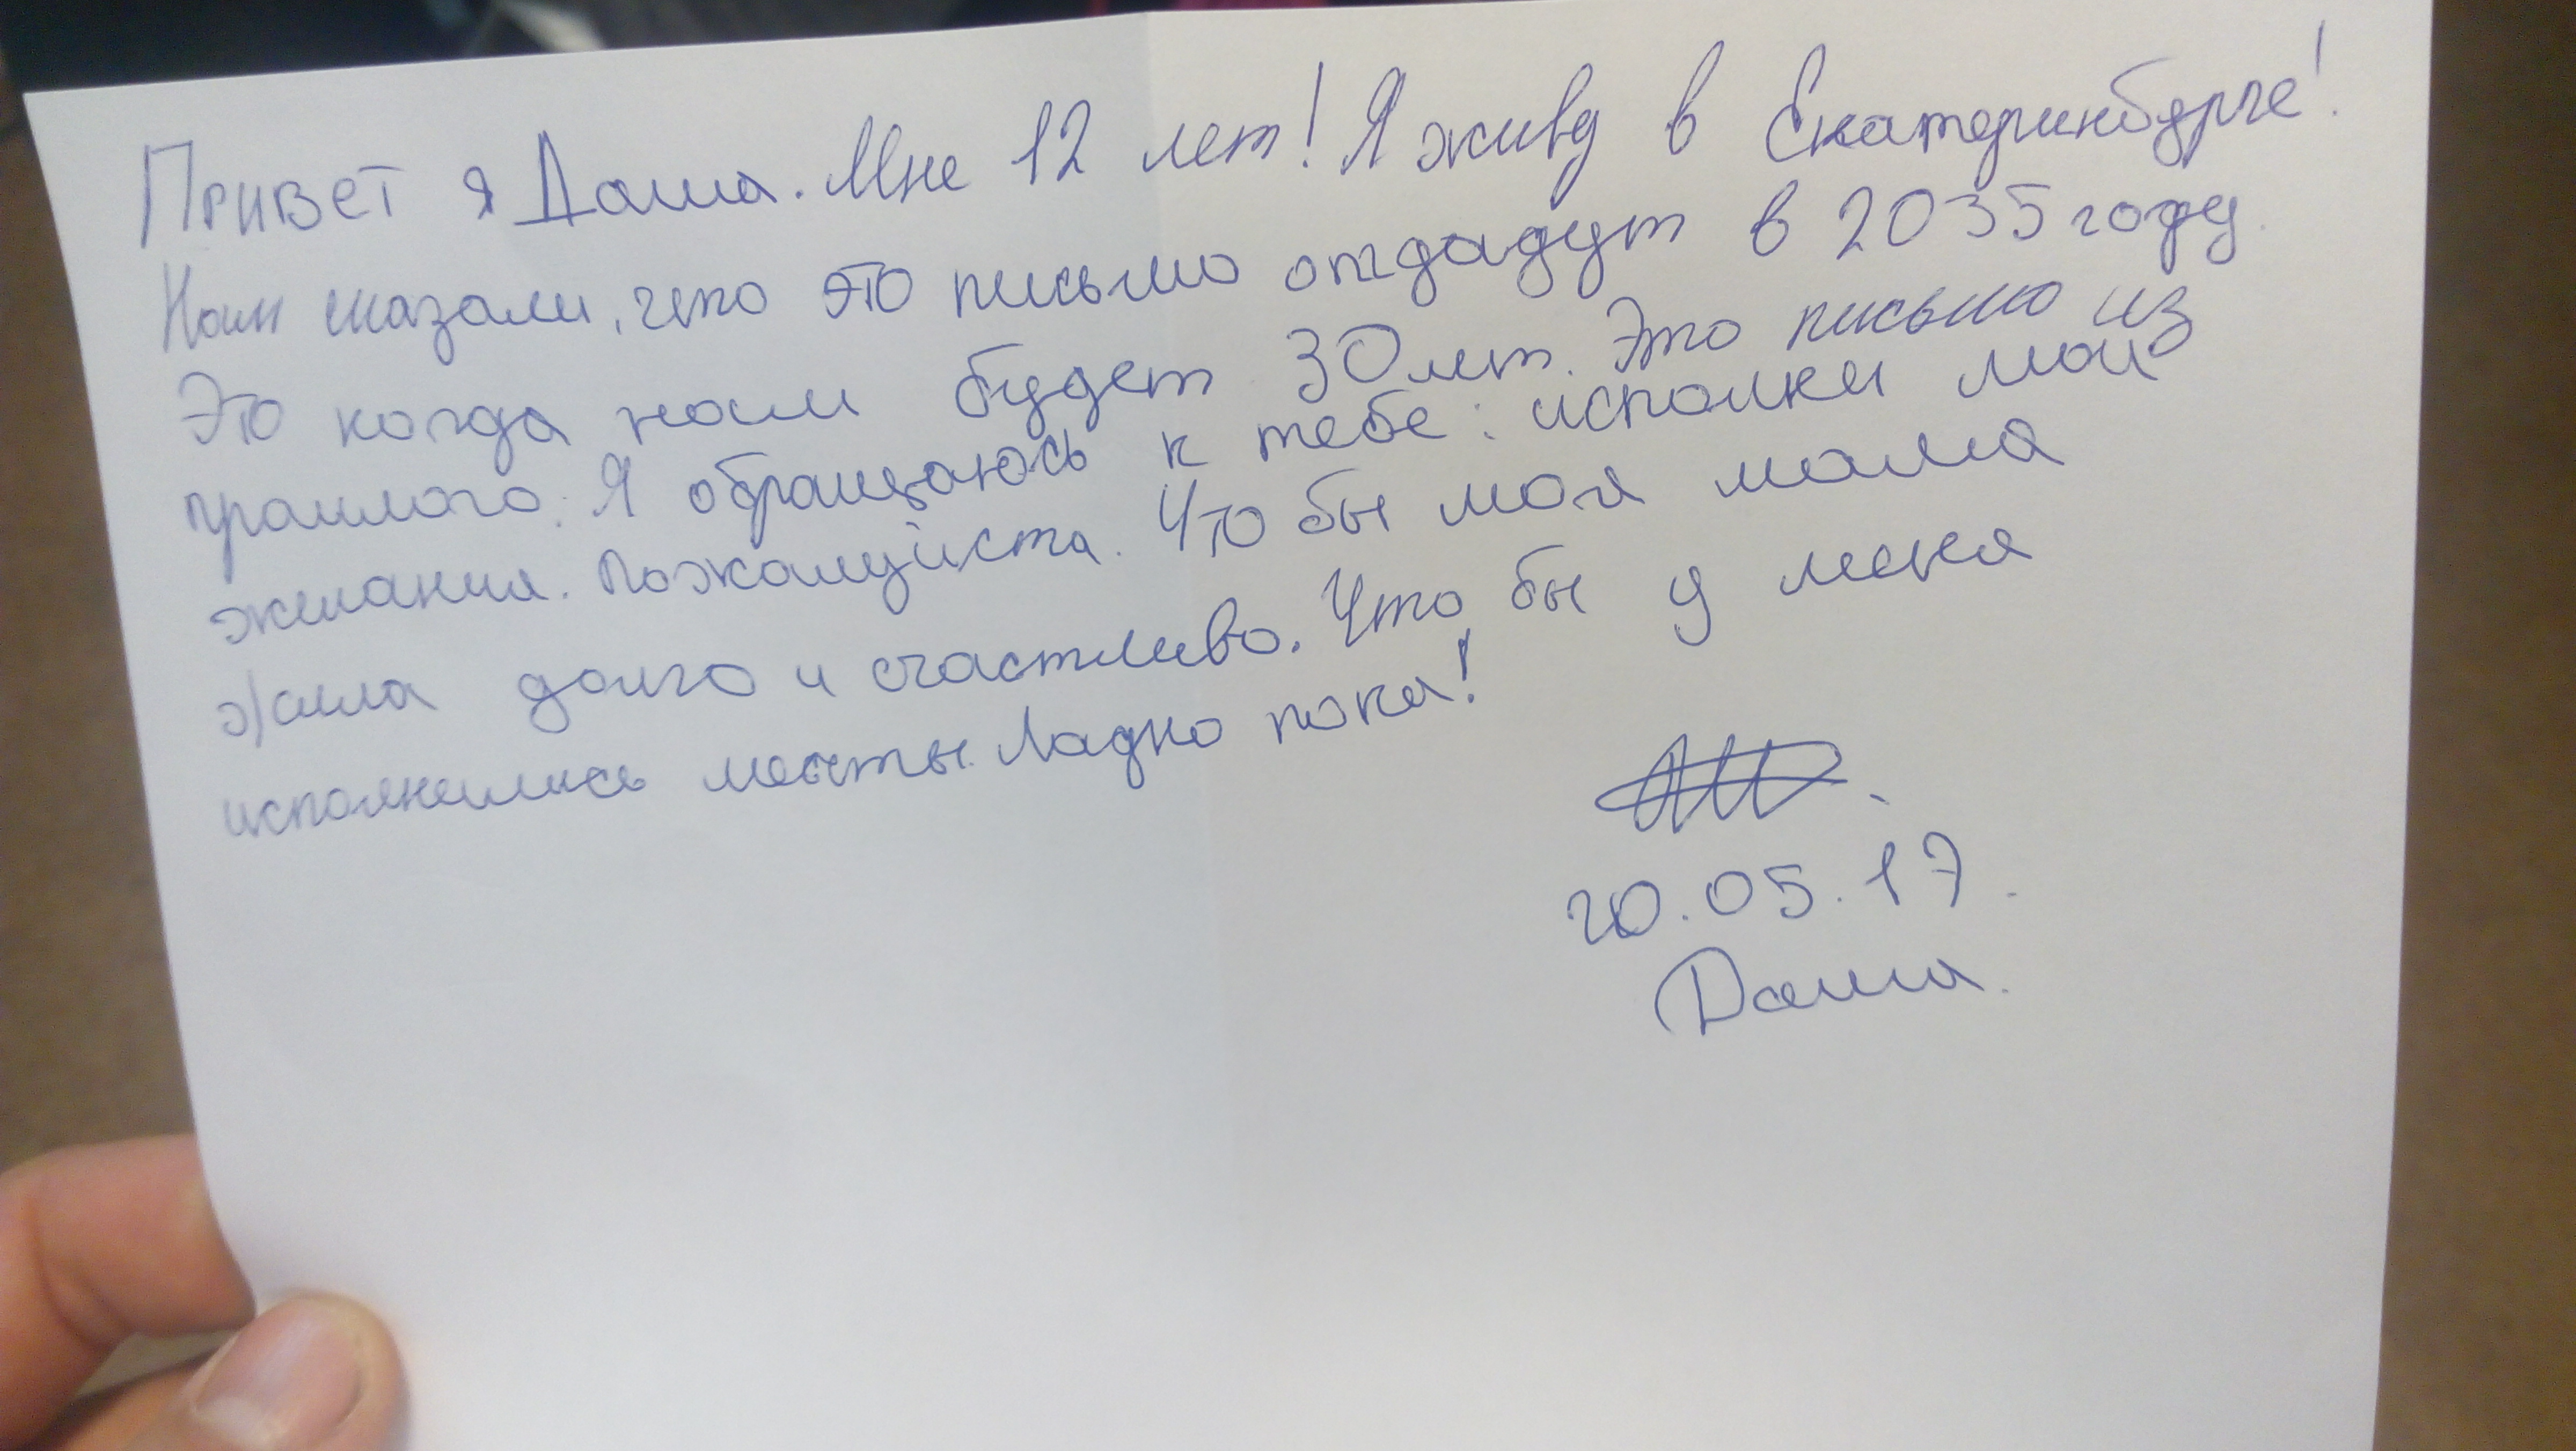 Привет я Даша. Мне 12 лет! Я живу в Екатеринбурге!
Нам сказали, что это письмо отдадут в 2035 году.
Это когда нам будет 30 лет. Это письмо из
прошлого. Я обращаюсь к тебе: исполни мои
желания. Пожалуйста. Что бы моя мама
жила долго и счастливо. Что бы у меня
исполнились мечты. Ладно пока!
20.05.17.
Даша.